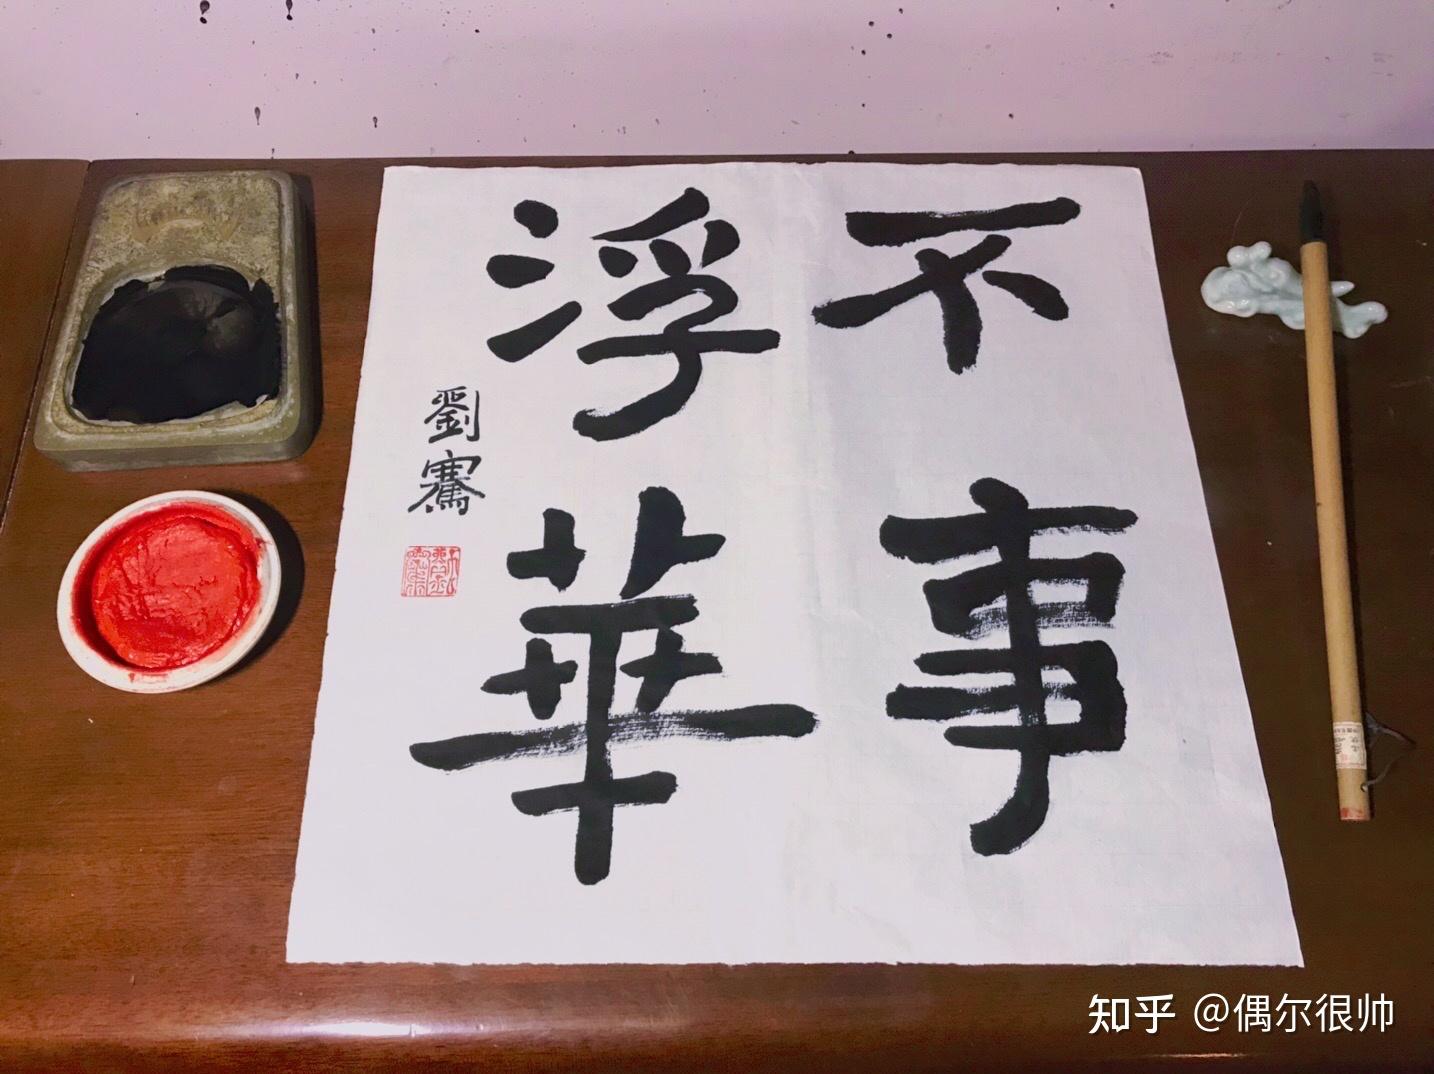 不事
浮華
劉騫
知乎 @偶尔很帅